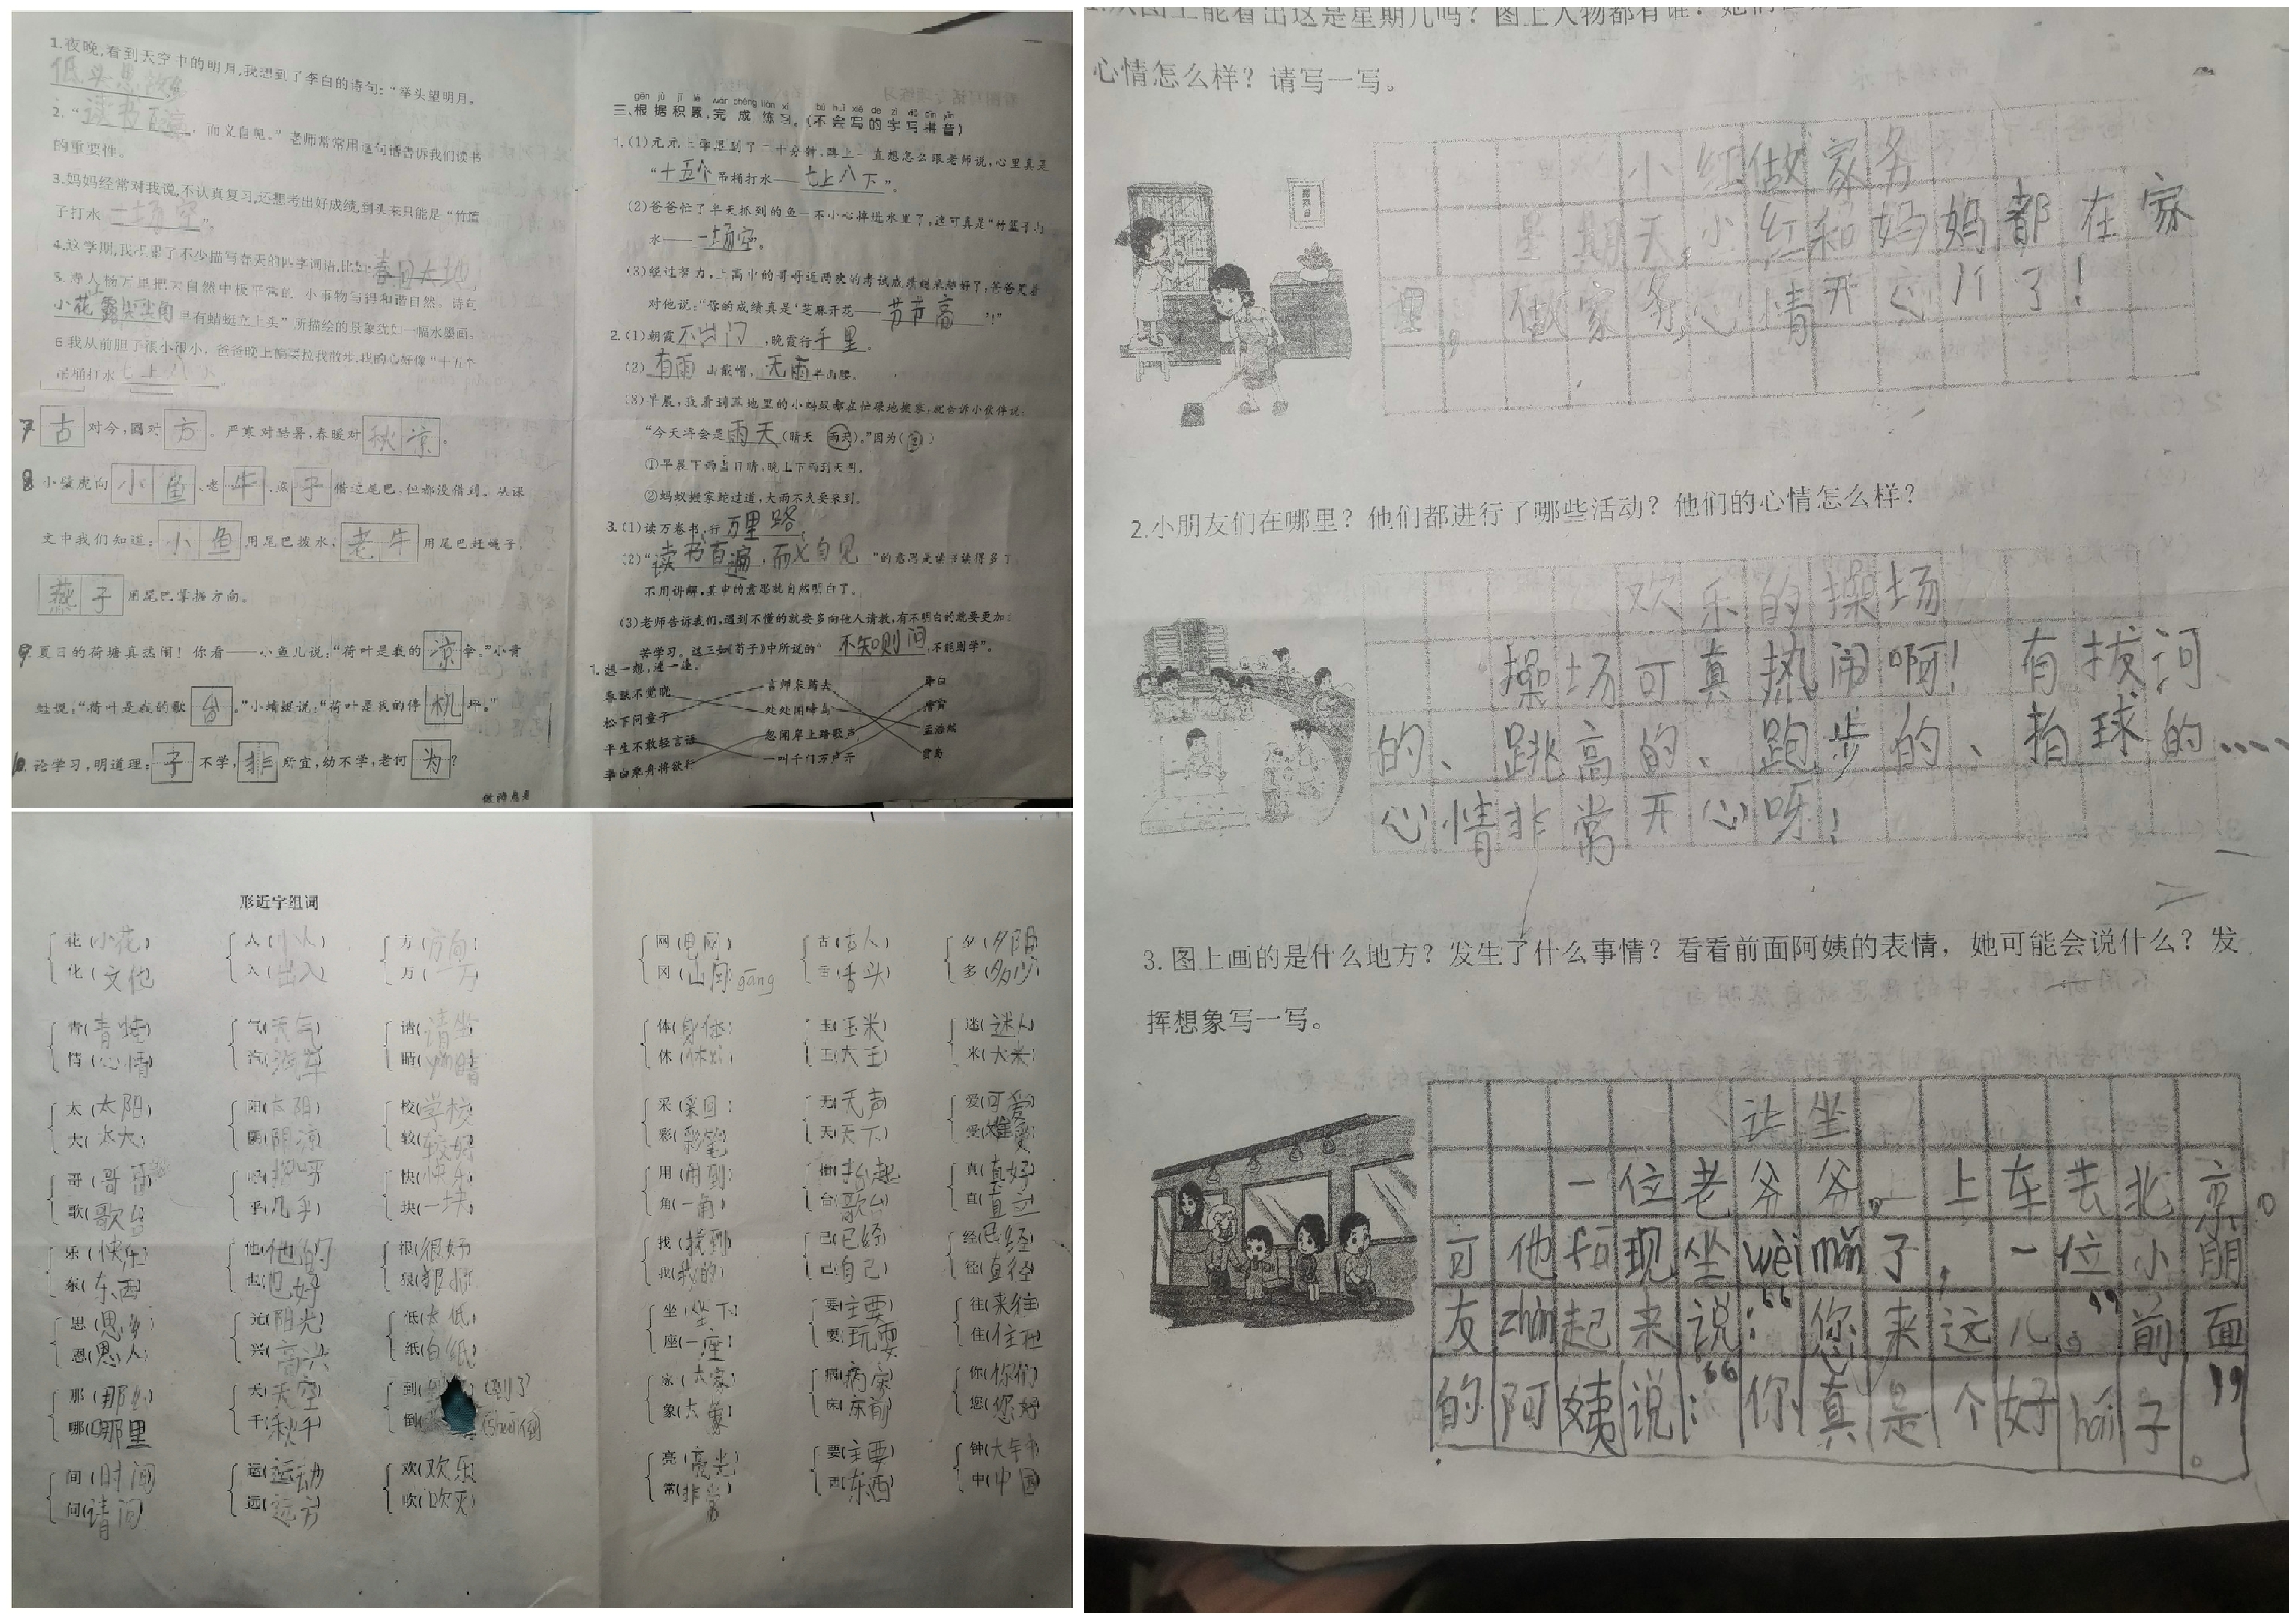 1.夜晚,看到天空中的明月,我想到了李白的诗句:“举头望明月,
低头思故乡
2.“读书百遍,而义自见。”老师常常用这句话告诉我们读书
的重要性。
3.妈妈经常对我说,不认真复习,还想考出好成绩,到头来只能是“竹篮
子打水一场空”。
4.这学期,我积累了不少描写春天的四字词语,比如:春回大地
5.诗人杨万里把大自然中极平常的 小事物写得和谐自然。诗句
小花露尖尖角 早有蜻蜓立上头”所描绘的景象犹如一幅水墨画。
6.我从前胆子很小很小。爸爸晚上偏要拉我散步,我的心好像“十五个
吊桶打水七上八下
7.古对今,圆对方。严寒对酷暑,春暖对秋凉。
8小壁虎向小鱼、老牛、燕子借过尾巴,但都没借到。从课
文中我们知道:小鱼用尾巴拨水,老牛用尾巴赶蝇子,
燕子用尾巴掌握方向。
9.夏日的荷塘真热闹!你看——小鱼儿说:“荷叶是我的凉伞。”小青
蛙说:“荷叶是我的歌台。”小蜻蜓说:“荷叶是我的停机坪。”
10.论学习,明道理:子不学,非所宜,幼不学,老何为?
gēn jù jī lěi wán chéng liàn xí bú huì xiě de zì xiě pīn yīn
三、根据积累,完成练习。(不会写的字写拼音)
1.(1)元元上学迟到了二十分钟,路上一直想怎么跟老师说,心里真是
“十五个吊桶打水——七上八下”。
(2)爸爸忙了半天抓到的鱼一不小心掉进水里了,这可真是“竹篮子打
水——一场空。
(3)经过努力,上高中的哥哥近两次的考试成绩越来越好了,爸爸笑着
对他说:“你的成绩真是‘芝麻开花——节节高’!”
2.(1)朝霞不出门,晚霞行千里.
(2)有雨山戴帽,无雨半山腰。
(3)早晨,我看到草地里的小蚂蚁都在忙碌地搬家,就告诉小伙伴说:
“今天将会是雨天(晴天 雨天),”因为(②)
①早晨下雨当日晴,晚上下雨到天明。
②蚂蚁搬家蛇过道,大雨不久要来到。
3.(1)读万卷书,行万里路
(2)“读书百遍,而义自见”的意思是读书读得多了,
不用讲解,其中的意思就自然明白了。
(3)老师告诉我们,遇到不懂的就要多向他人请教,有不明白的就要更加
苦学习。这正如《荀子》中所说的“不知则问,不能则学”。
1.想一想,连一连。
春眠不觉晓 言师采药去 李白
松下问童子 处处闻啼鸟 唐寅
平生不敢轻言语 忽闻岸上踏歌声 孟浩然
李白乘舟将欲行 一叫千门万户开 贾岛
1.从图上能看出这是星期几吗?图上人物都有谁?她们在哪里
心情怎么样?请写一写。
星期日
小红做家务
星期天,小红和妈妈都在家
里,做家务,心情开心儿了!
2.小朋友们在哪里?他们都进行了哪些活动?他们的心情怎么样?
欢乐的操场
操场可真热闹啊!有拔河
的、跳高的、跑步的、拍球的....
心情非常开心呀!
3.图上画的是什么地方?发生了什么事情?看看前面阿姨的表情,她可能会说什么?发
挥想象写一写。
让坐
一位老爷爷。上车去北京。
可他fā现坐wèimǎn了,一位小朋
友zhàn起来说:“您来这儿。”前面
的阿姨说:“你真是个好hái子。”
形近字组词
花(小花) 人(小人) 方(方向)
化(文化 入(出入) 万(一万)
青(青蛙) 气(天气) 请(请坐)
情(心情) 汽(汽车 睛(眼睛
太(太阳) 阳(太阳) 校(学校
大(太大) 阴(阴凉) 较(较好
哥(哥哥 呼(招呼 快(快乐
歌(歌台 乎(几乎) 块(一块)
乐(快乐 他(他的 很(很好
东(东西 也(也好 狠(狠
思(思乡) 光(阳光) 低(太低)
恩(恩人 兴(高兴 纸(白纸)
那(那么 天(天空 到(到了)
哪(哪里 千(秋千
间(时间) 运(运动 欢(欢乐
问(请问) 远(远方 吹(吹灭)
网(电网) 古(古人) 夕(夕阳
冈(山冈)gāng 舌(舌头) 多(多少)
体(身体) 玉(玉米) 迷(迷人
休(休xi) 王(大王) 米(大米)
采(采回) 无(无声 爱(可爱
彩(彩笔) 天(天下) 受(难受)
用(用到) 抬(抬起 真(真好
角(一角) 台(歌台 直(直立
找(找到 已(已经 经(已经
我(我的) 己(自己) 径(直径)
坐(坐下 要(主要) 往(来往
座(一座 耍(玩耍 住(住在
家(大家 病(病床 你(你们
象(大象 床(床前 您(您好
亮(亮光 要(主要 钟(大钟)
常(非常 西(东西) 中(中国